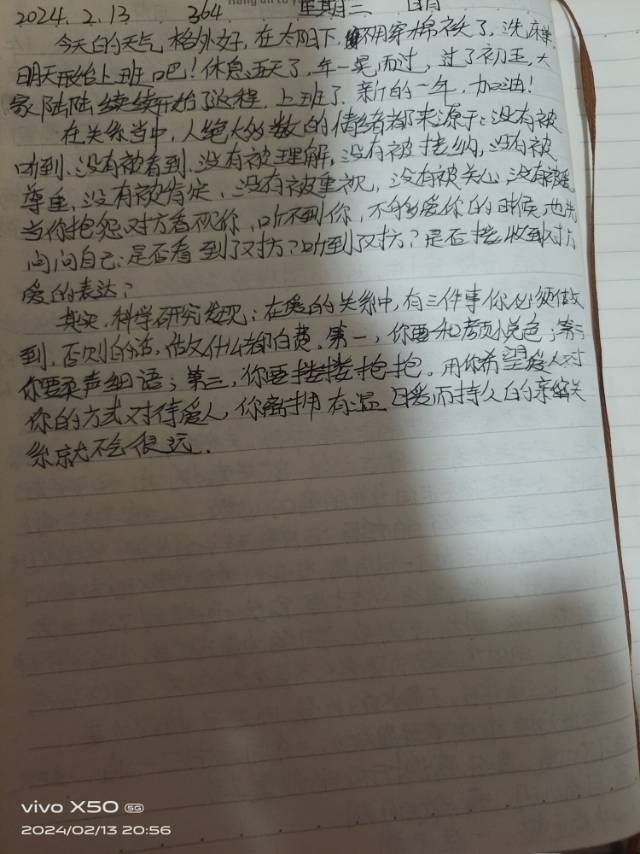 2024.2.13 364 星期二 晴
今天的天气格外好,在太阳下,都不用穿棉衣了,洗麻
明天开始上班吧!休息五天了,年一晃而过,过了初五,大
家陆陆续续开始了返程,上班了.新的一年,加油!
在关系当中,人绝大多数的情绪都来源于:没有被
听到、没有被看到、没有被理解,没有被接纳,没有被
尊重,没有被肯定、没有被重视,没有被关心,没有被爱,
当你抱怨对方忽视你,听不到你,不够爱你的时候,也先
问问自己:是否看到了对方?听到了对方?是否接收到对方
爱的表达?
其实,科学研究发现:在爱的关系中,有三件事你必须做
到,否则的话,做什么都白费.第一,你要和颜悦色;第二
你要柔声细语;第三,你要搂搂抱抱.用你希望爱人对
你的方式对待爱人,你离拥有温暖而持久的亲密关
系就不会很远.
vivo X50 5G
2024/02/13 20:56